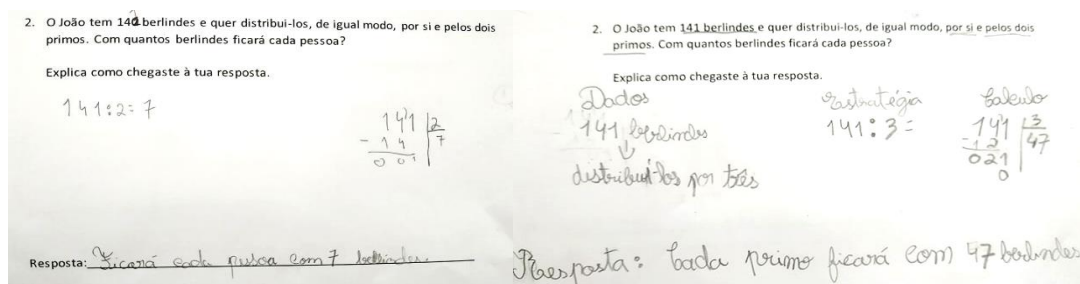 2. O João tem 141 berlindes e quer distribui-los, de igual modo, por si e pelos dois
primos. Com quantos berlindes ficará cada pessoa?
Explica como chegaste à tua resposta.
141:2=7
141 2
- 14 7
001
Resposta: Ficará cada pessoa com 7 berlindes.
2. O João tem 141 berlindes e quer distribui-los, de igual modo, por si e pelos dois
primos. Com quantos berlindes ficará cada pessoa?
Explica como chegaste à tua resposta.
Dados Estratégia Calculo
141 berlindes 141:3= 141 3
-12 47
021
0
distribuí-los por três
Resposta: Cada primo ficará com 47 berlindes